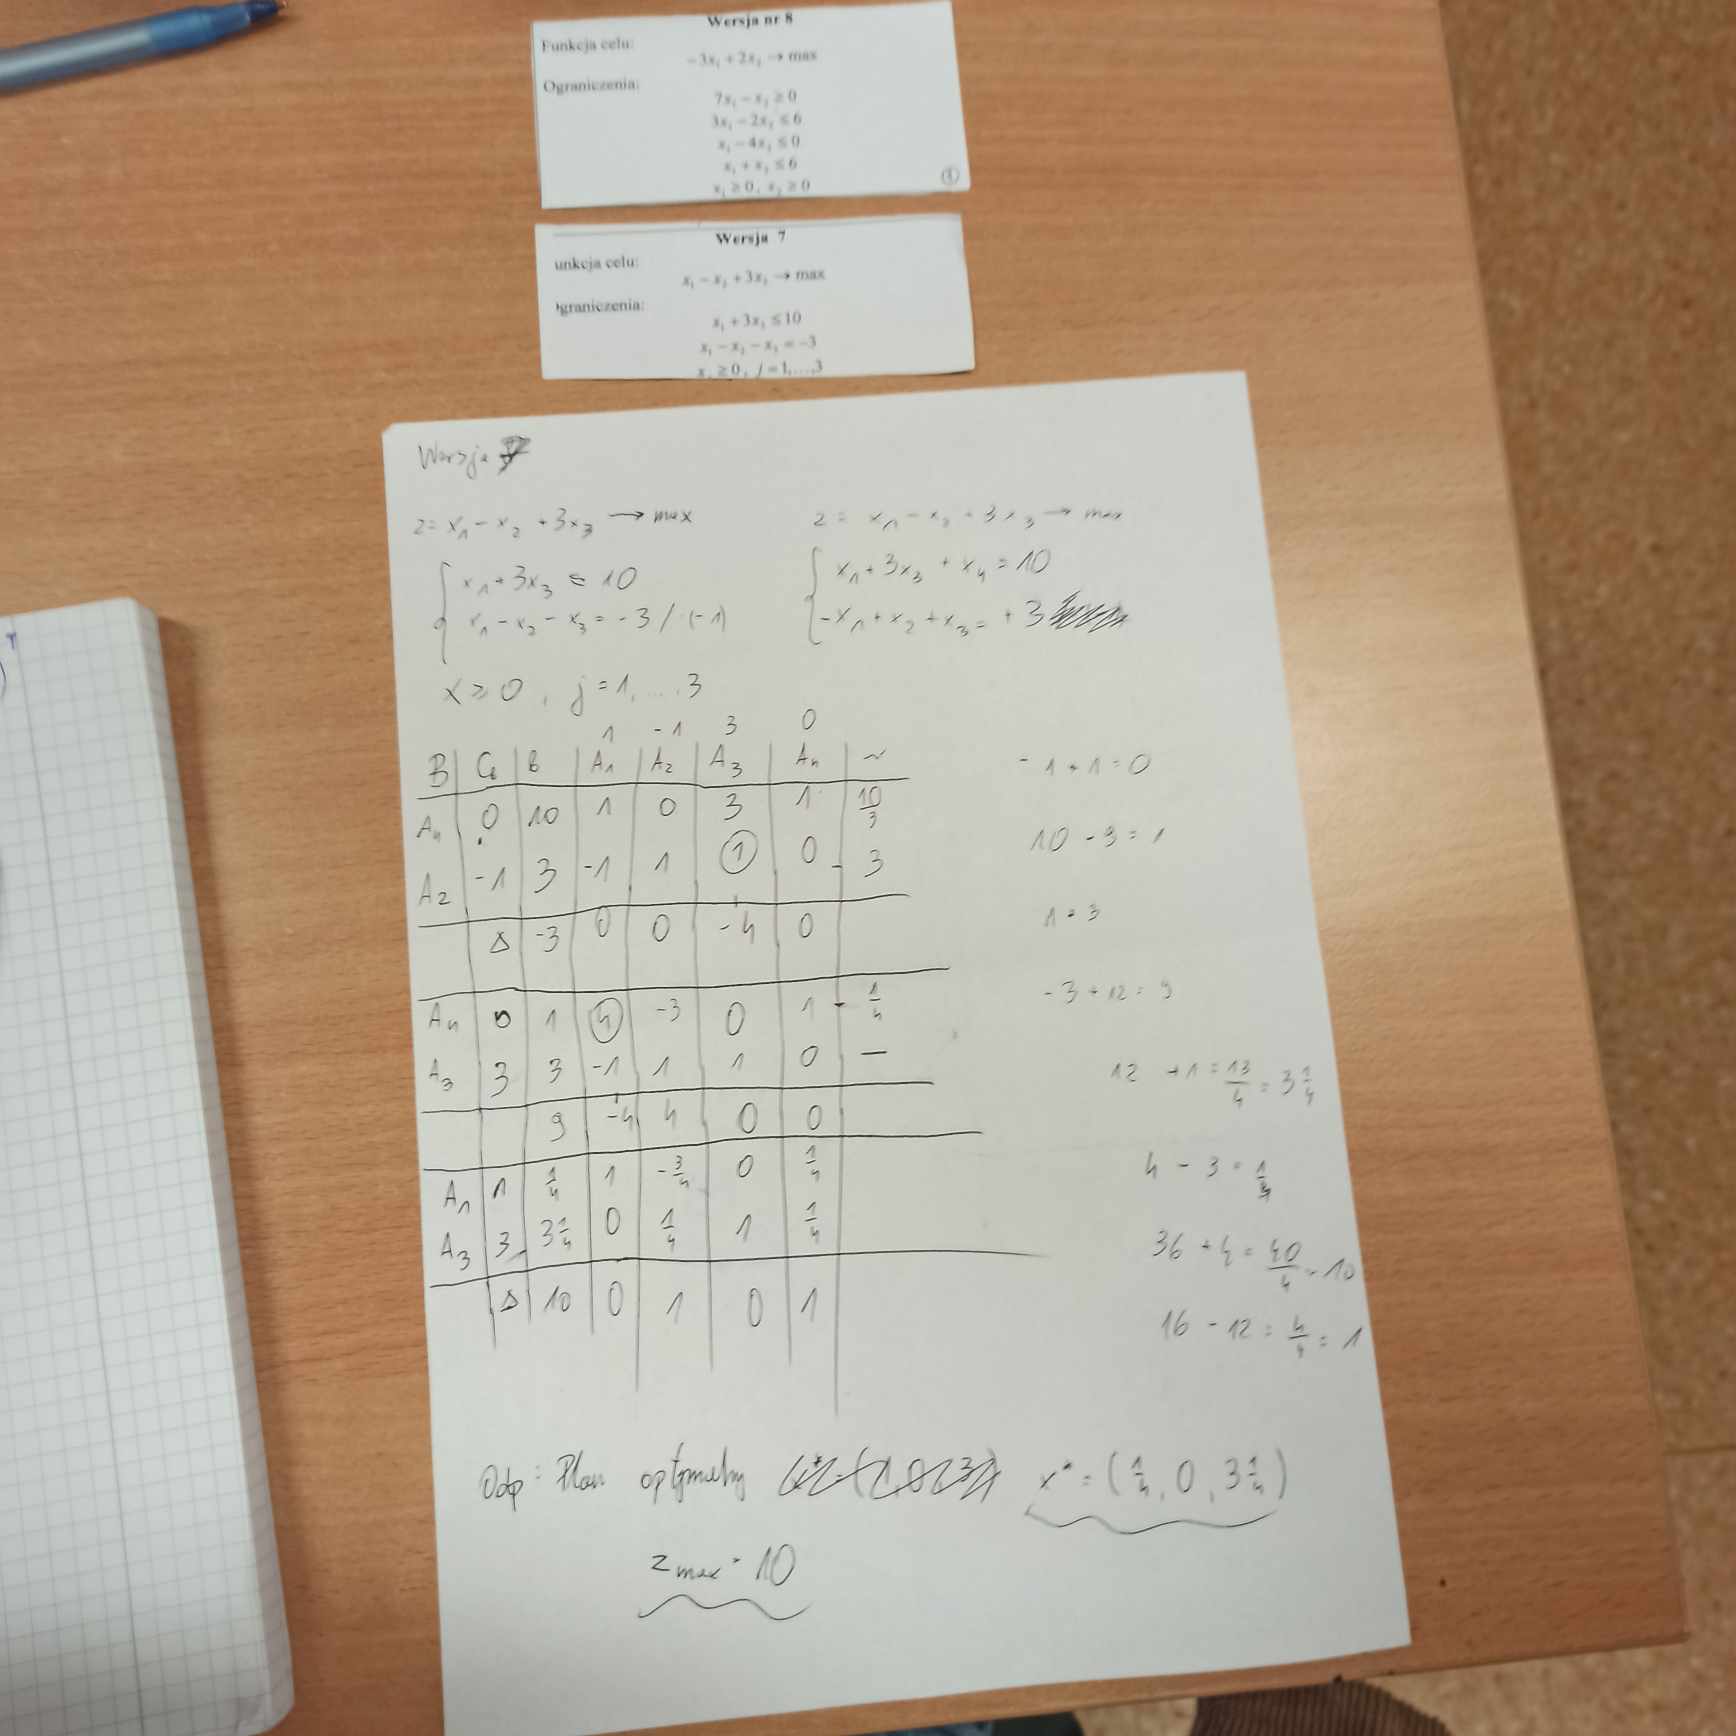 Wersja nr 8
Funkcja celu:
-3x₁ + 2x₂ → max
Ograniczenia:
7x₁ - x₂ ≥ 0
3x₁ - 2x₂ ≤ 6
x₁ - 4x₂ ≤ 0
x₁ + x₂ ≤ 6
x₁ ≥ 0, x₂ ≥ 0
Wersja 7
unkcja celu:
x₁ - x₂ + 3x₃ → max
graniczenia:
x₁ + 3x₃ ≤ 10
x₁ - x₂ - x₃ = -3
x ≥ 0, j = 1,...,3
Wersja
z = x₁ - x₂ + 3x₃ → max
x₁ + 3x₃ = 10
x₁ - x₂ - x₃ = -3 / ·(-1)
x ≥ 0, j = 1, ... 3
z = x₁ - x₂ + 3x₃ → max
x₁ + 3x₃ + x₄ = 10
-x₁ + x₂ + x₃ = +3
1 -1 3 0
B C₆ b A₁ A₂ A₃ A₄ ~
A₄ 0 10 1 0 3 1 10/3
A₂ -1 3 -1 1 1 0 3
Δ -3 0 0 -4 0
A₄ 0 1 4 -3 0 1 1/4
A₃ 3 3 -1 1 1 0 —
9 -4 4 0 0
A₁ 1 1/4 1 -3/4 0 1/4
A₃ 3 3 1/4 0 1/4 1 1/4
Δ 10 0 1 0 1
-1 + 1 = 0
10 - 9 = 1
1 · 3
-3 + 12 = 9
12 + 1 = 13/4 = 3 1/4
4 - 3 = 1/4
36 + 4 = 40/4 = 10
16 - 12 = 4/4 = 1
Odp: Plan optymalny x* = (1/4, 0, 3 1/4)
z max = 10